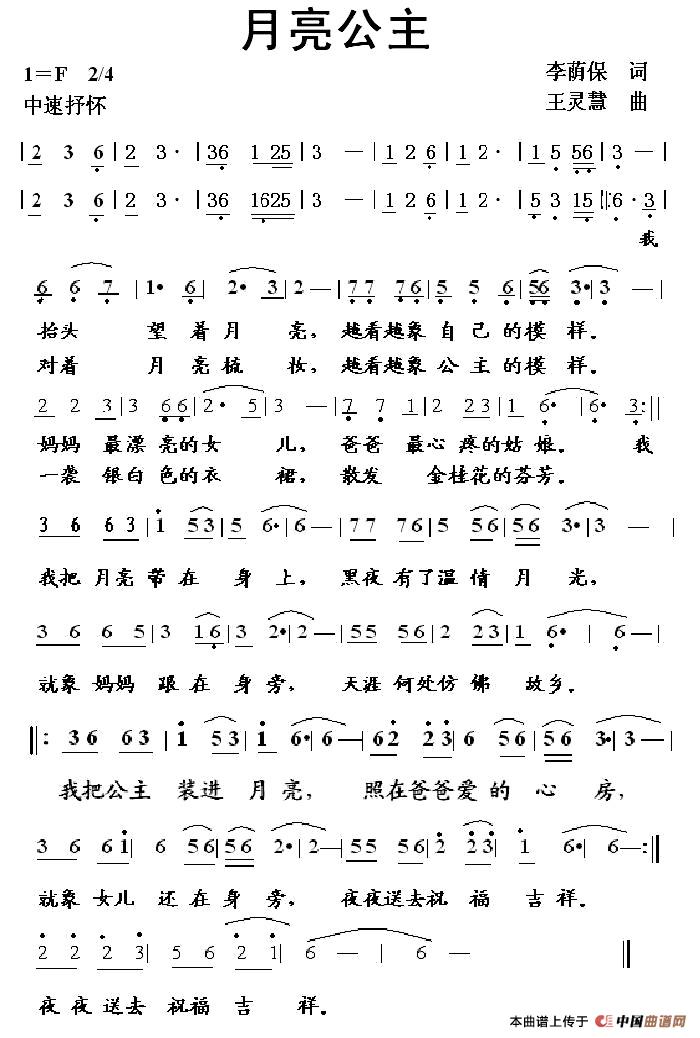 月亮公主
1=F 2/4 李荫保 词
中速抒怀 王灵慧 曲
| 2 3 6 | 2 3· | 36 125 | 3 — | 1 2 6 | 1 2· | 1 5 56 | 3 — |
| 2 3 6 | 2 3· | 36 1625 | 3 — | 1 2 6 | 1 2· | 5 3 15 |: 6· 3 |
我
6 6 7 | 1· 6 | 2· 3 | 2 — | 77 76 | 5 5 6 | 56 3· | 3 — |
抬头 望着月 亮，越看越象自己的模样。
对着 月亮梳 妆，越看越象公主的模样。
2 2 3 | 3 66 | 2· 5 | 3 — | 7 7 1 | 2 23 | 1 6· | 6· 3 :||
妈妈 最漂亮的女 儿，爸爸 最心疼的姑娘。 我
一袭 银白色的衣 裙，散发 金桂花的芬芳。
3 6 63 | 1 53 | 5 6· | 6 — | 77 76 | 5 56 | 56 3· | 3 — |
我把月亮带在身上，黑夜有了温情月光，
3 6 6 5 | 3 16 | 3 2· | 2 — | 55 56 | 2 23 | 1 6· | 6 — |
就象妈妈跟在身旁， 天涯何处仿佛 故乡。
||: 36 63 | 1 53 | 1 6· | 6 — | 62 23 | 6 56 | 56 3· | 3 — |
我把公主 装进 月亮， 照在爸爸爱的 心 房，
3 6 61 | 6 56 | 56 2· | 2 — | 55 56 | 2 23 | 1 6· | 6 — :||
就象女儿 还在身旁， 夜夜送去祝福 吉祥。
2 2 2 3 | 5 6 2 1 | 6 — | 6 — ||
夜夜送去 祝福吉 祥。
本曲谱上传于 中国曲谱网